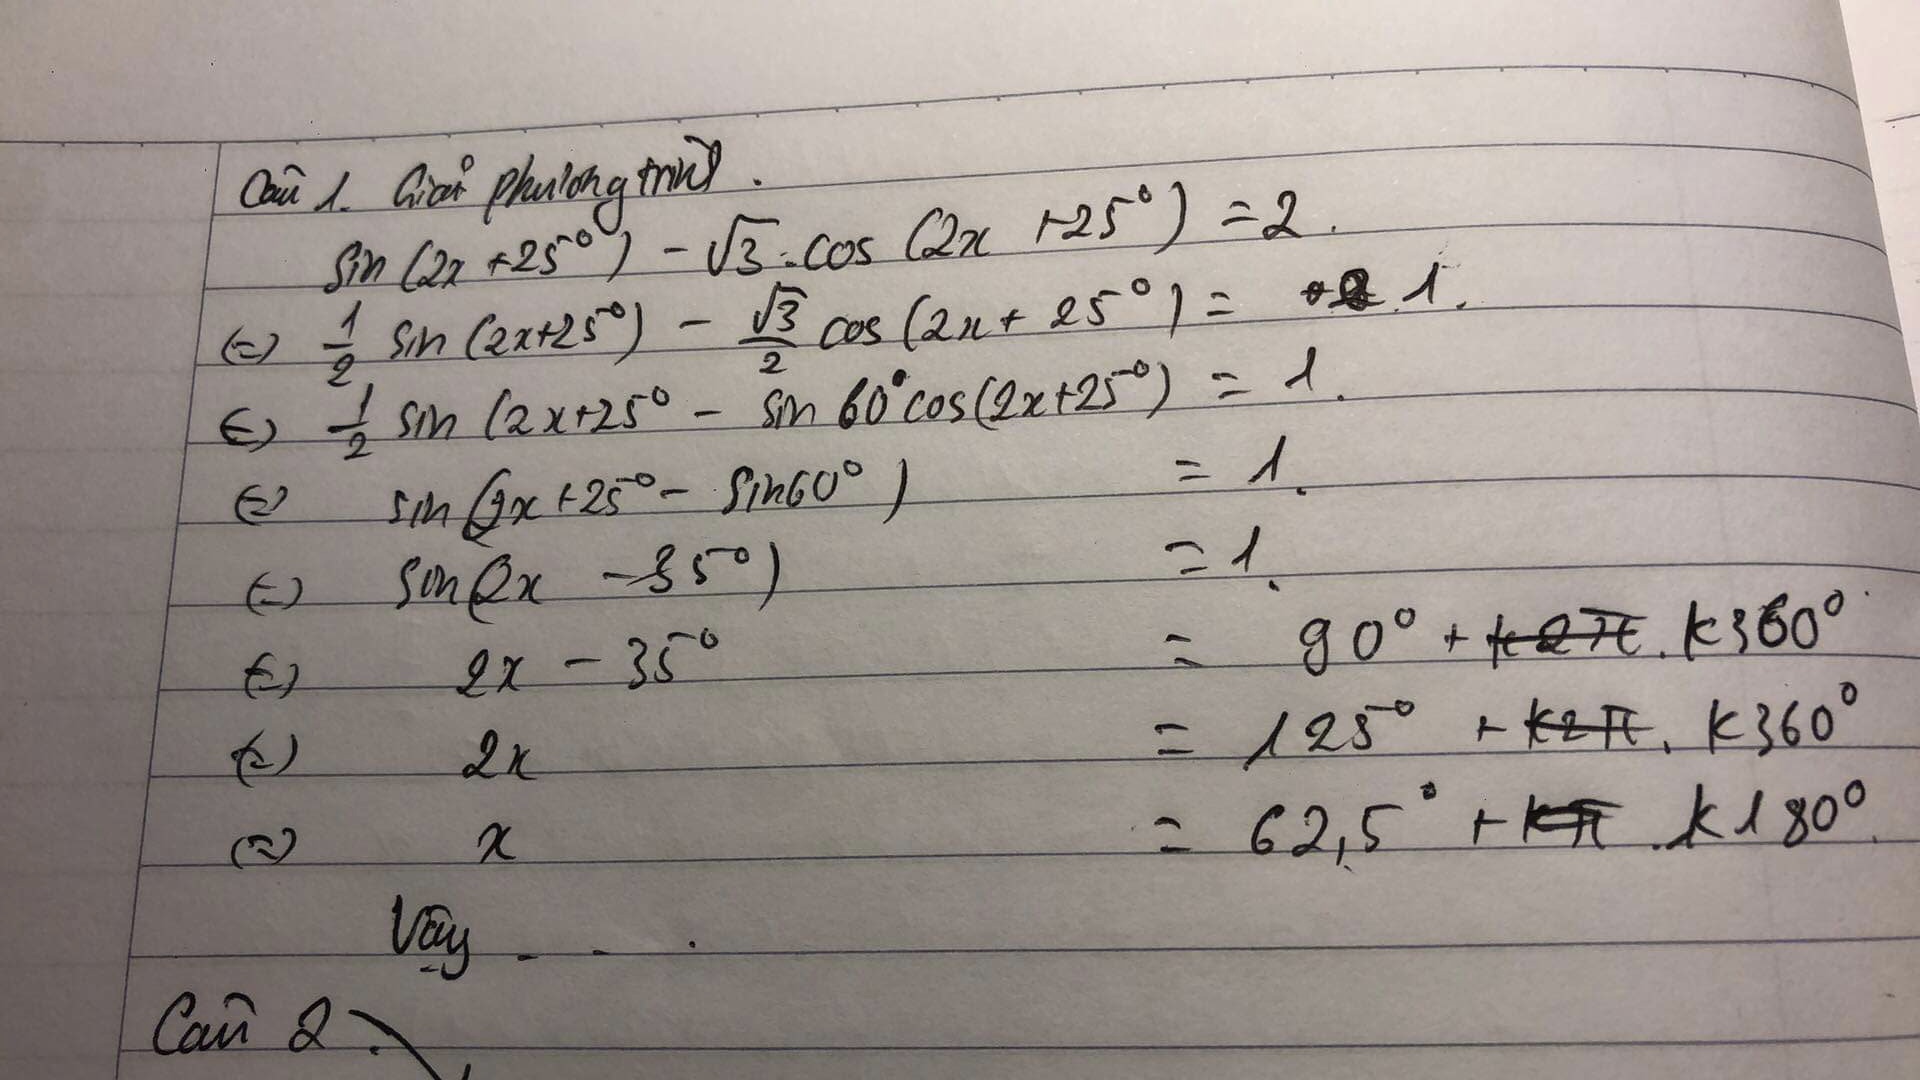 Câu 1. Giải phương trình.
sin (2x + 25°) - √3 . cos (2x + 25°) = 2.
(=) 1/2 sin (2x+25°) - √3/2 cos (2x + 25°) = 1.
(=) 1/2 sin (2x+25° - sin 60° cos(2x+25°) = 1.
(=) sin (2x + 25° - sin60°) = 1.
(=) sin(2x - 35°) = 1.
(=) 2x - 35° = 90° + k2π . k360°
(=) 2x = 125° + k2π . k360°
(=) x = 62,5° + kπ . k180°
Vậy - - .
Câu 2.